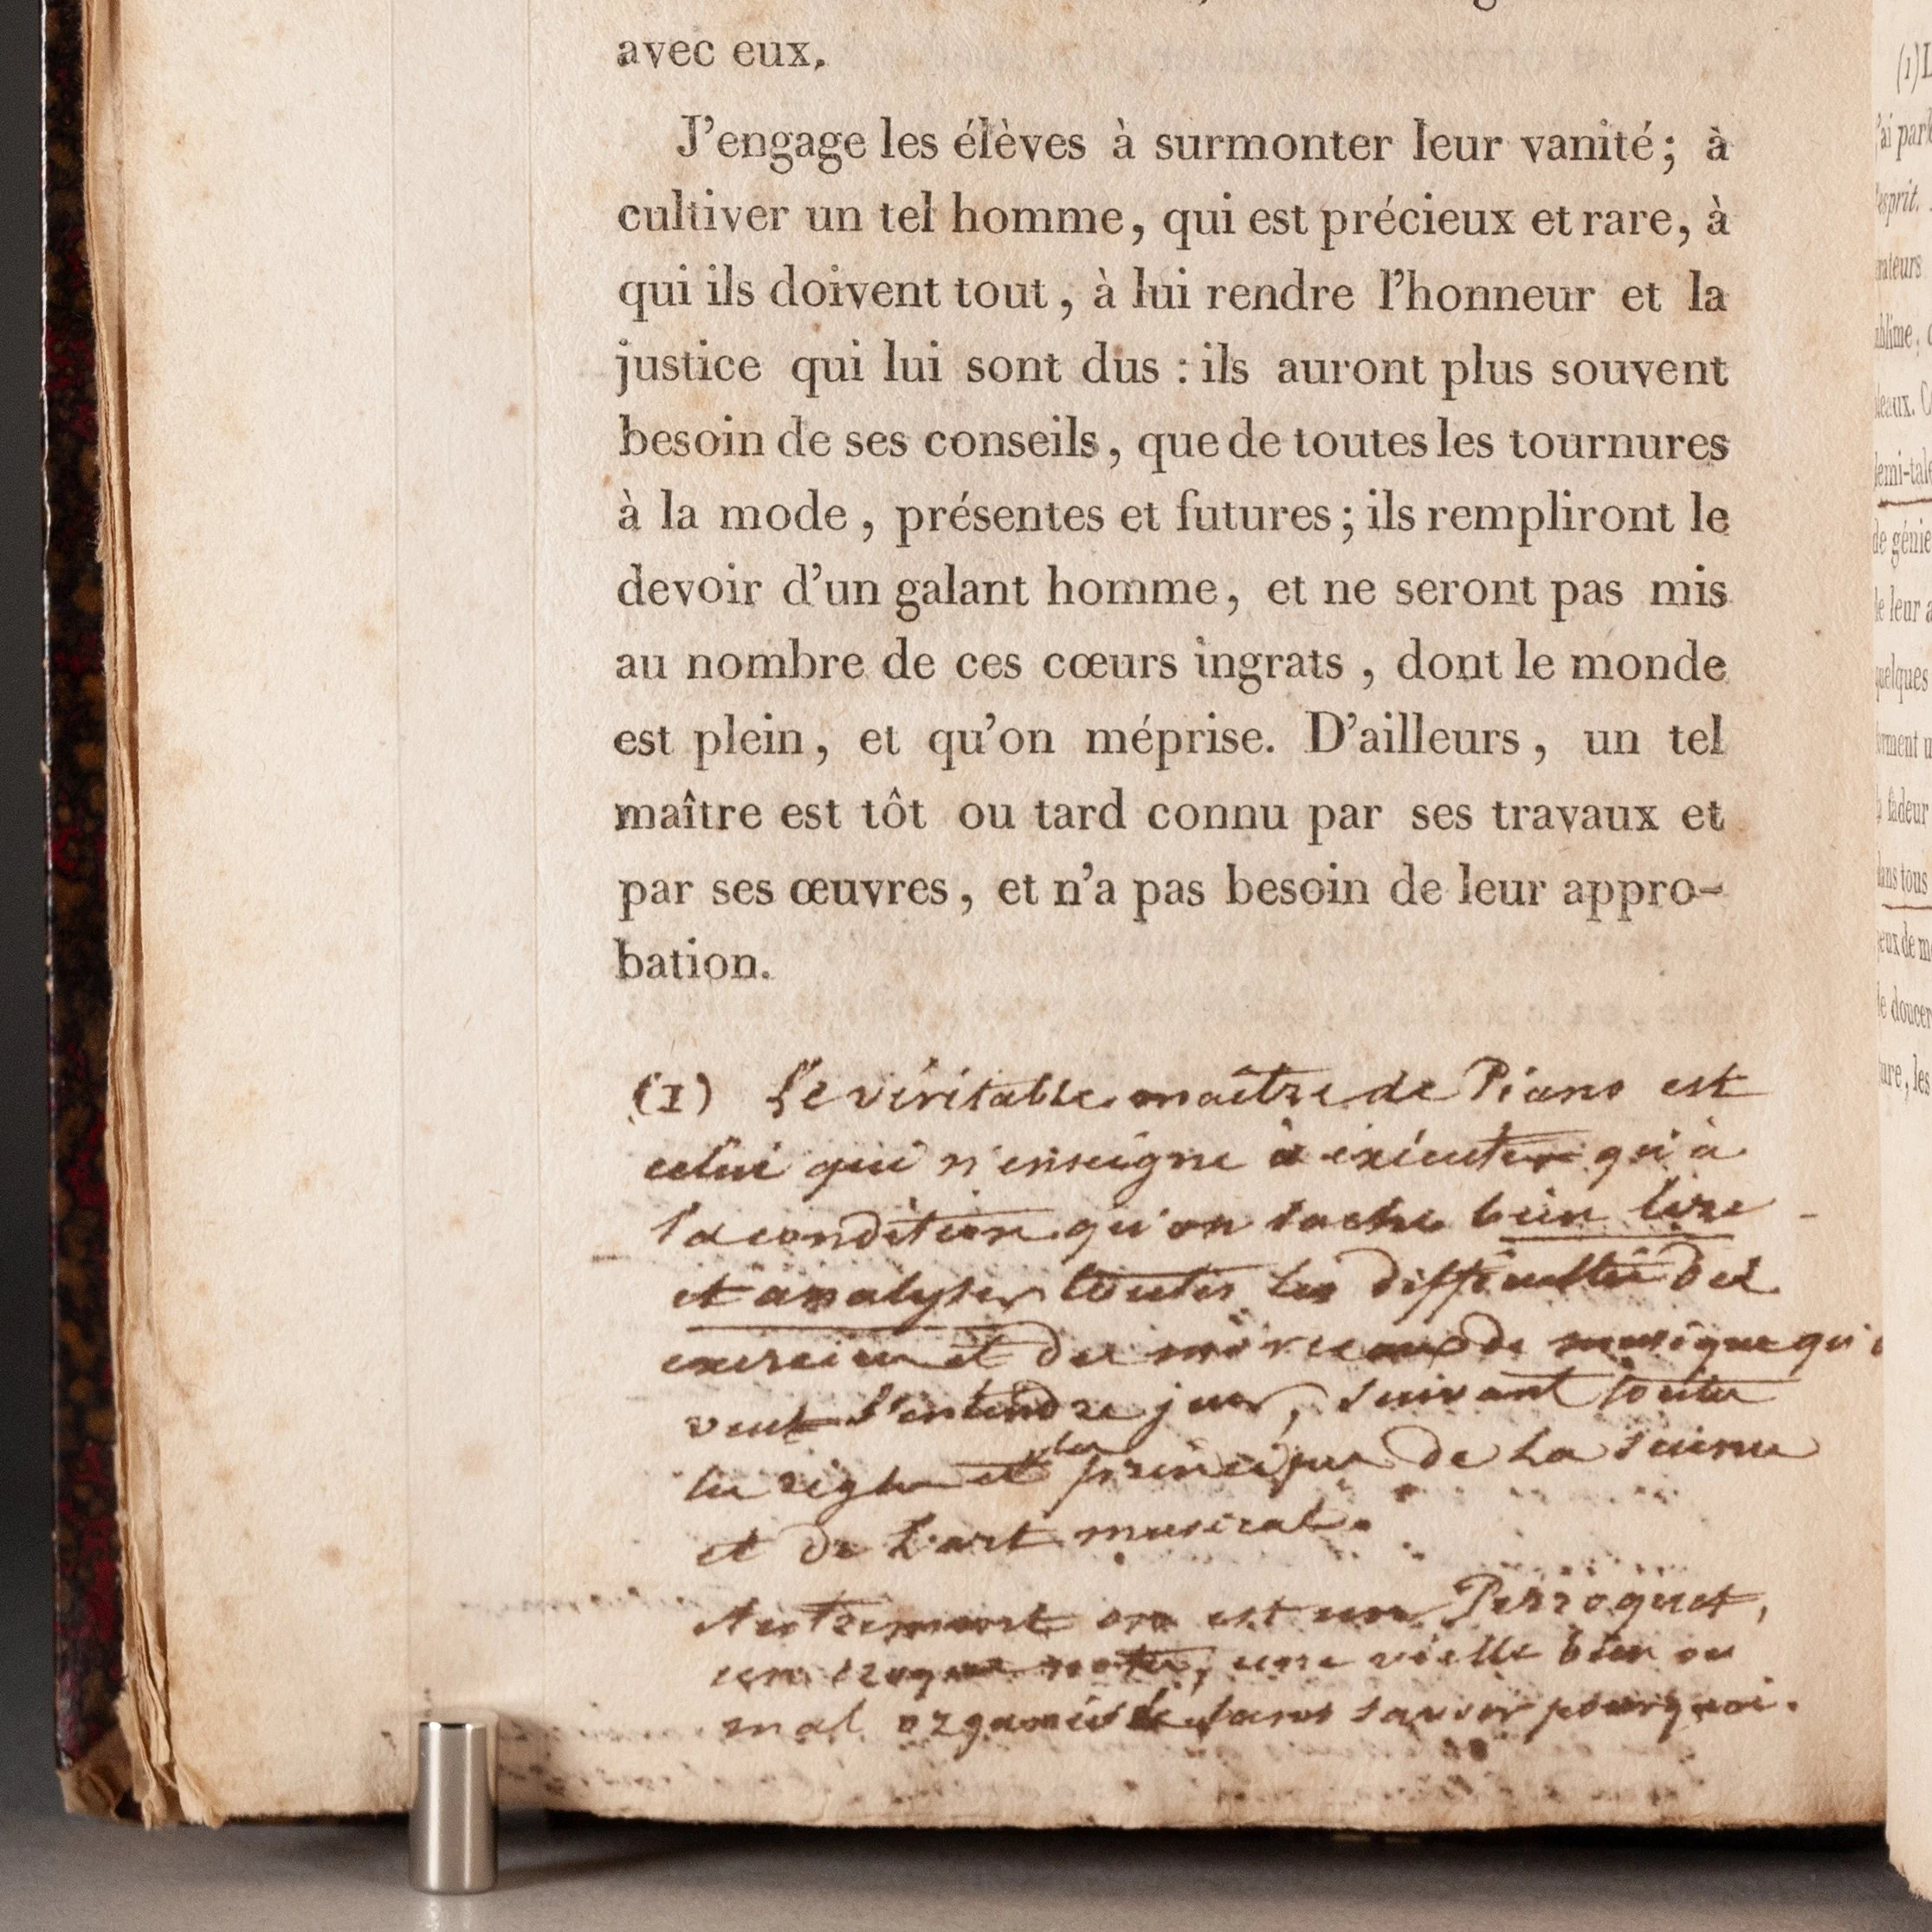 avec eux.
J'engage les élèves à surmonter leur vanité; à
cultiver un tel homme, qui est précieux et rare, à
qui ils doivent tout, à lui rendre l'honneur et la
justice qui lui sont dus : ils auront plus souvent
besoin de ses conseils, que de toutes les tournures
à la mode, présentes et futures; ils rempliront le
devoir d'un galant homme, et ne seront pas mis
au nombre de ces cœurs ingrats, dont le monde
est plein, et qu'on méprise. D'ailleurs, un tel
maître est tôt ou tard connu par ses travaux et
par ses œuvres, et n'a pas besoin de leur appro-
bation.
(1) Le véritable maître de Piano est
celui qui n'enseigne à exécuter qu'à
la condition qu'on sache bien lire
et analyser toutes les difficultés des
exercices et des morceaux de musique
veut jouer, suivant toutes
les règles et les principes de la science
et de l'art musical.
Autrement on est un Perroquet,
un croque notes, une vielle bien ou
mal organisée sans savoir pourquoi.
(1) L
'ai parl
'esprit.
rateurs
ublime,
demi-tale
de génie
quelques
fadeur
dans tous